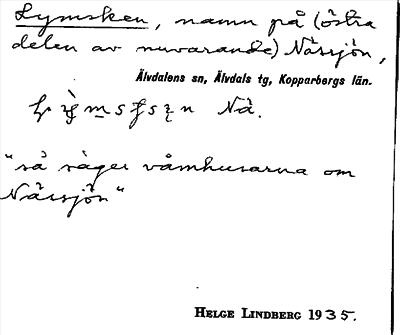 Lymsken, namn på (östra
delen av nuvarande) Nässjön,
Älvdalens sn, Älvdals tg, Kopparbergs län.
Nä.
"så säger våmhusarna om
Nässjön"
HELGE LINDBERG 1935.